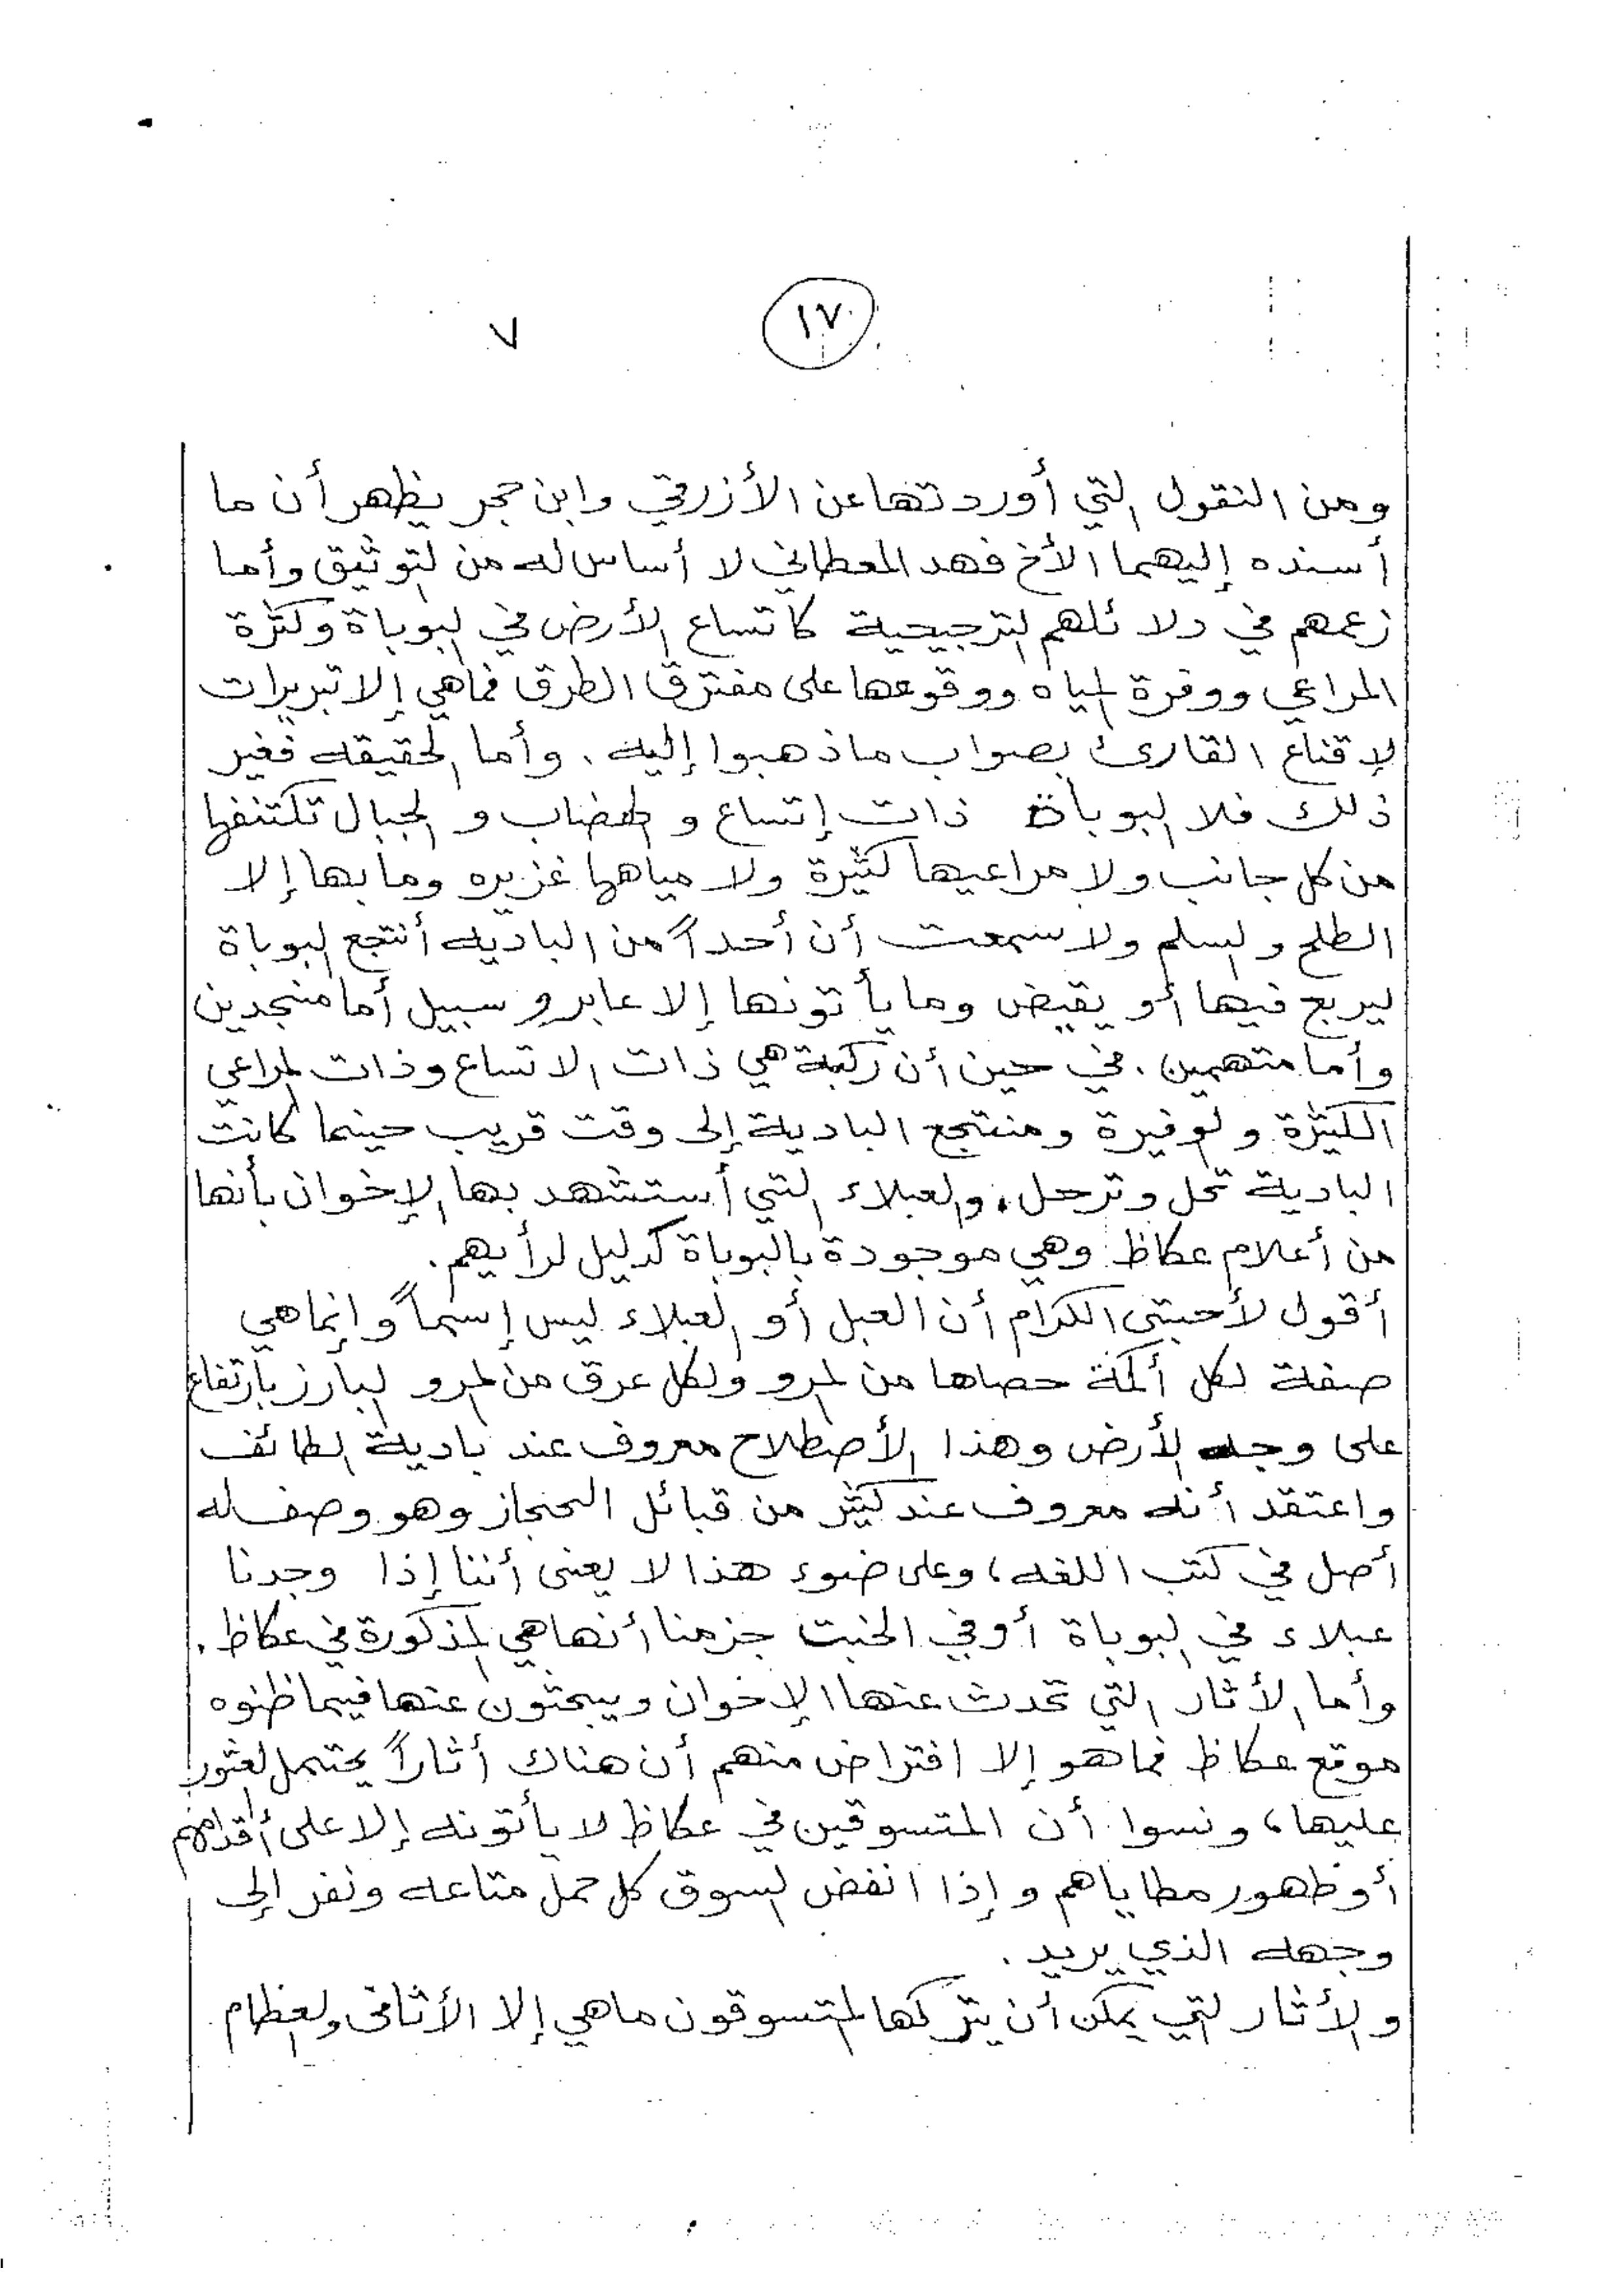 ١٧
٧
ومن النقول التي أوردتها عن الأزرقي وابن حجر يظهر أن ما
أسنده إليهما الأخ فهد المعطاني لا أساس له من التوثيق وأما
زعمهم في دلائلهم الترجيحية كاتساع الأرض في البوباة وكثرة
المراعي ووفرة المياه ووقوعها على مفترق الطرق فما هي إلا تبريرات
لإقناع القارئ بصواب ما ذهبوا إليه . وأما الحقيقه فغير
ذلك فلا البوباة ذات إتساع والهضاب والجبال تكتنفها
من كل جانب ولا مراعيها كثيرة ولا مياهها غزيره وما بها إلا
الطلح والسلم ولا سمعت أن أحداً من الباديه أنتجع البوباة
ليربع فيها أو يقيض وما يأتونها إلا عابرو سبيل أما منجدين
وأما متهمين . في حين أن ركبة هي ذات الاتساع وذات المراعي
الكثيرة والوفيرة ومنتجع البادية إلى وقت قريب حينما كانت
البادية تحل وترحل . والعبلاء التي أستشهد بها الإخوان بأنها
من أعلام عكاظ وهي موجودة بالبوباة كدليل لرأيهم .
أقول لأحبتى الكرام أن العبل أو العبلاء ليس إسماً وإنما هي
صفة لكل أكمة حصاها من المرو ولكل عرق من المرو البارز بأرتفاع
على وجه الأرض وهذا الأصطلاح معروف عند بادية الطائف
واعتقد أنه معروف عند كثير من قبائل الحجاز وهو وصف له
أصل في كتب اللغه ، وعلى ضوء هذا لا يعنى أننا إذا وجدنا
عبلاء في البوباة أو في الخبت جزمنا أنها هي المذكورة في عكاظ .
وأما الأثار التي تحدث عنها الإخوان ويبحثون عنها فيما ظنوه
موقع عكاظ فما هو إلا افتراض منهم أن هناك أثاراً يحتمل العثور
عليها ، ونسوا أن المتسوقين في عكاظ لا يأتونه إلا على أقدامهم
أو ظهور مطاياهم وإذا انفض السوق كل حمل متاعه ونفر إلى
وجهه الذي يريد .
والأثار التي يمكن أن يتركها المتسوقون ما هي إلا الأثافى والعظام